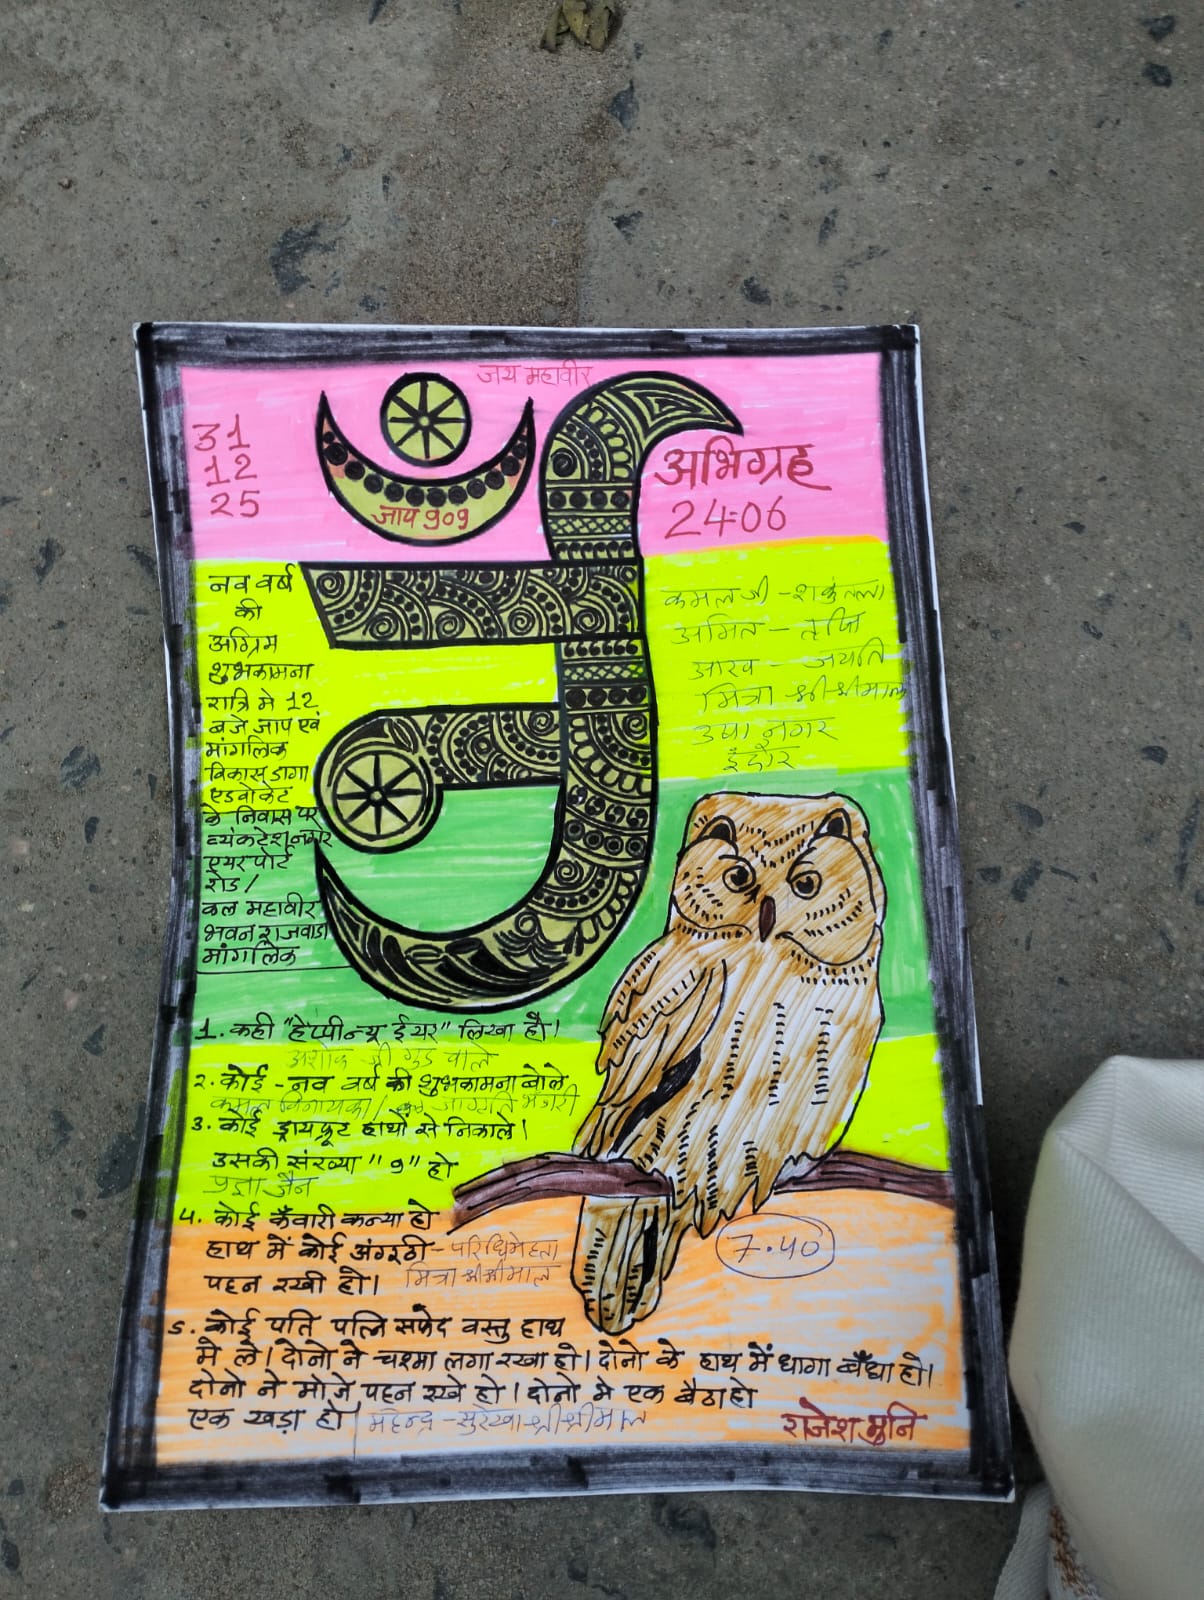 जय महावीर
31
12
25
जाप 909
अभिग्रह
24:06
नव वर्ष
की
अग्रिम
शुभकामना
रात्रि मे 12
बजे जाप एवं
मांगलिक
विकास डागा
एडवोकेट
के निवास पर
व्यंकटेश नगर
एयरपोर्ट
रोड/
कल महावीर
भवन राजवाडा
मांगलिक
कमल जी - शकुंतला
अमित - तृप्ति
आरव - जयति
मित्रा श्री श्रीमाल
उषा नगर
इंदौर
1. कही "हेप्पी न्यू ईयर" लिखा हो।
अशोक जी गुड वाले
2. कोई - नव वर्ष की शुभकामना बोले
कमल विनायका/ जागृति भंजरी
3. कोई ड्रायफ्रूट हाथों से निकाले।
उसकी संख्या "9" हो
प्रज्ञा जैन
4. कोई कँवारी कन्या हो
हाथ में कोई अंगूठी - परिधि मेहता
पहन रखी हो। मित्रा श्रीश्रीमाल
7.40
5. कोई पति पत्नि सफेद वस्तु हाथ
मे ले। दोनो ने चश्मा लगा रखा हो। दोनो के हाथ में धागा बँधा हो।
दोनो ने मोजे पहन रखे हो। दोनो मे एक बैठा हो
एक खड़ा हो। महेन्द्र - सुरेखा श्रीश्रीमाल
राजेश मुनि